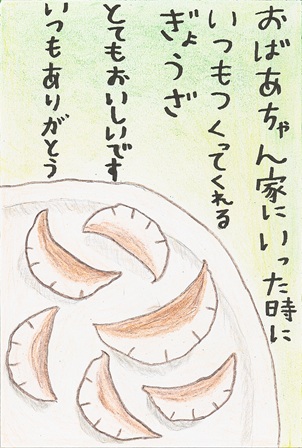 おばあちゃん家にいった時に
いつもつくってくれる
ぎょうざ
とてもおいしいです
いつもありがとう